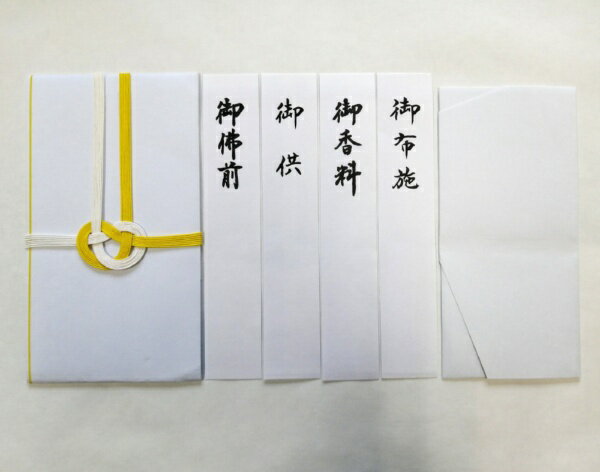 御佛前
御供
御香料
御布施